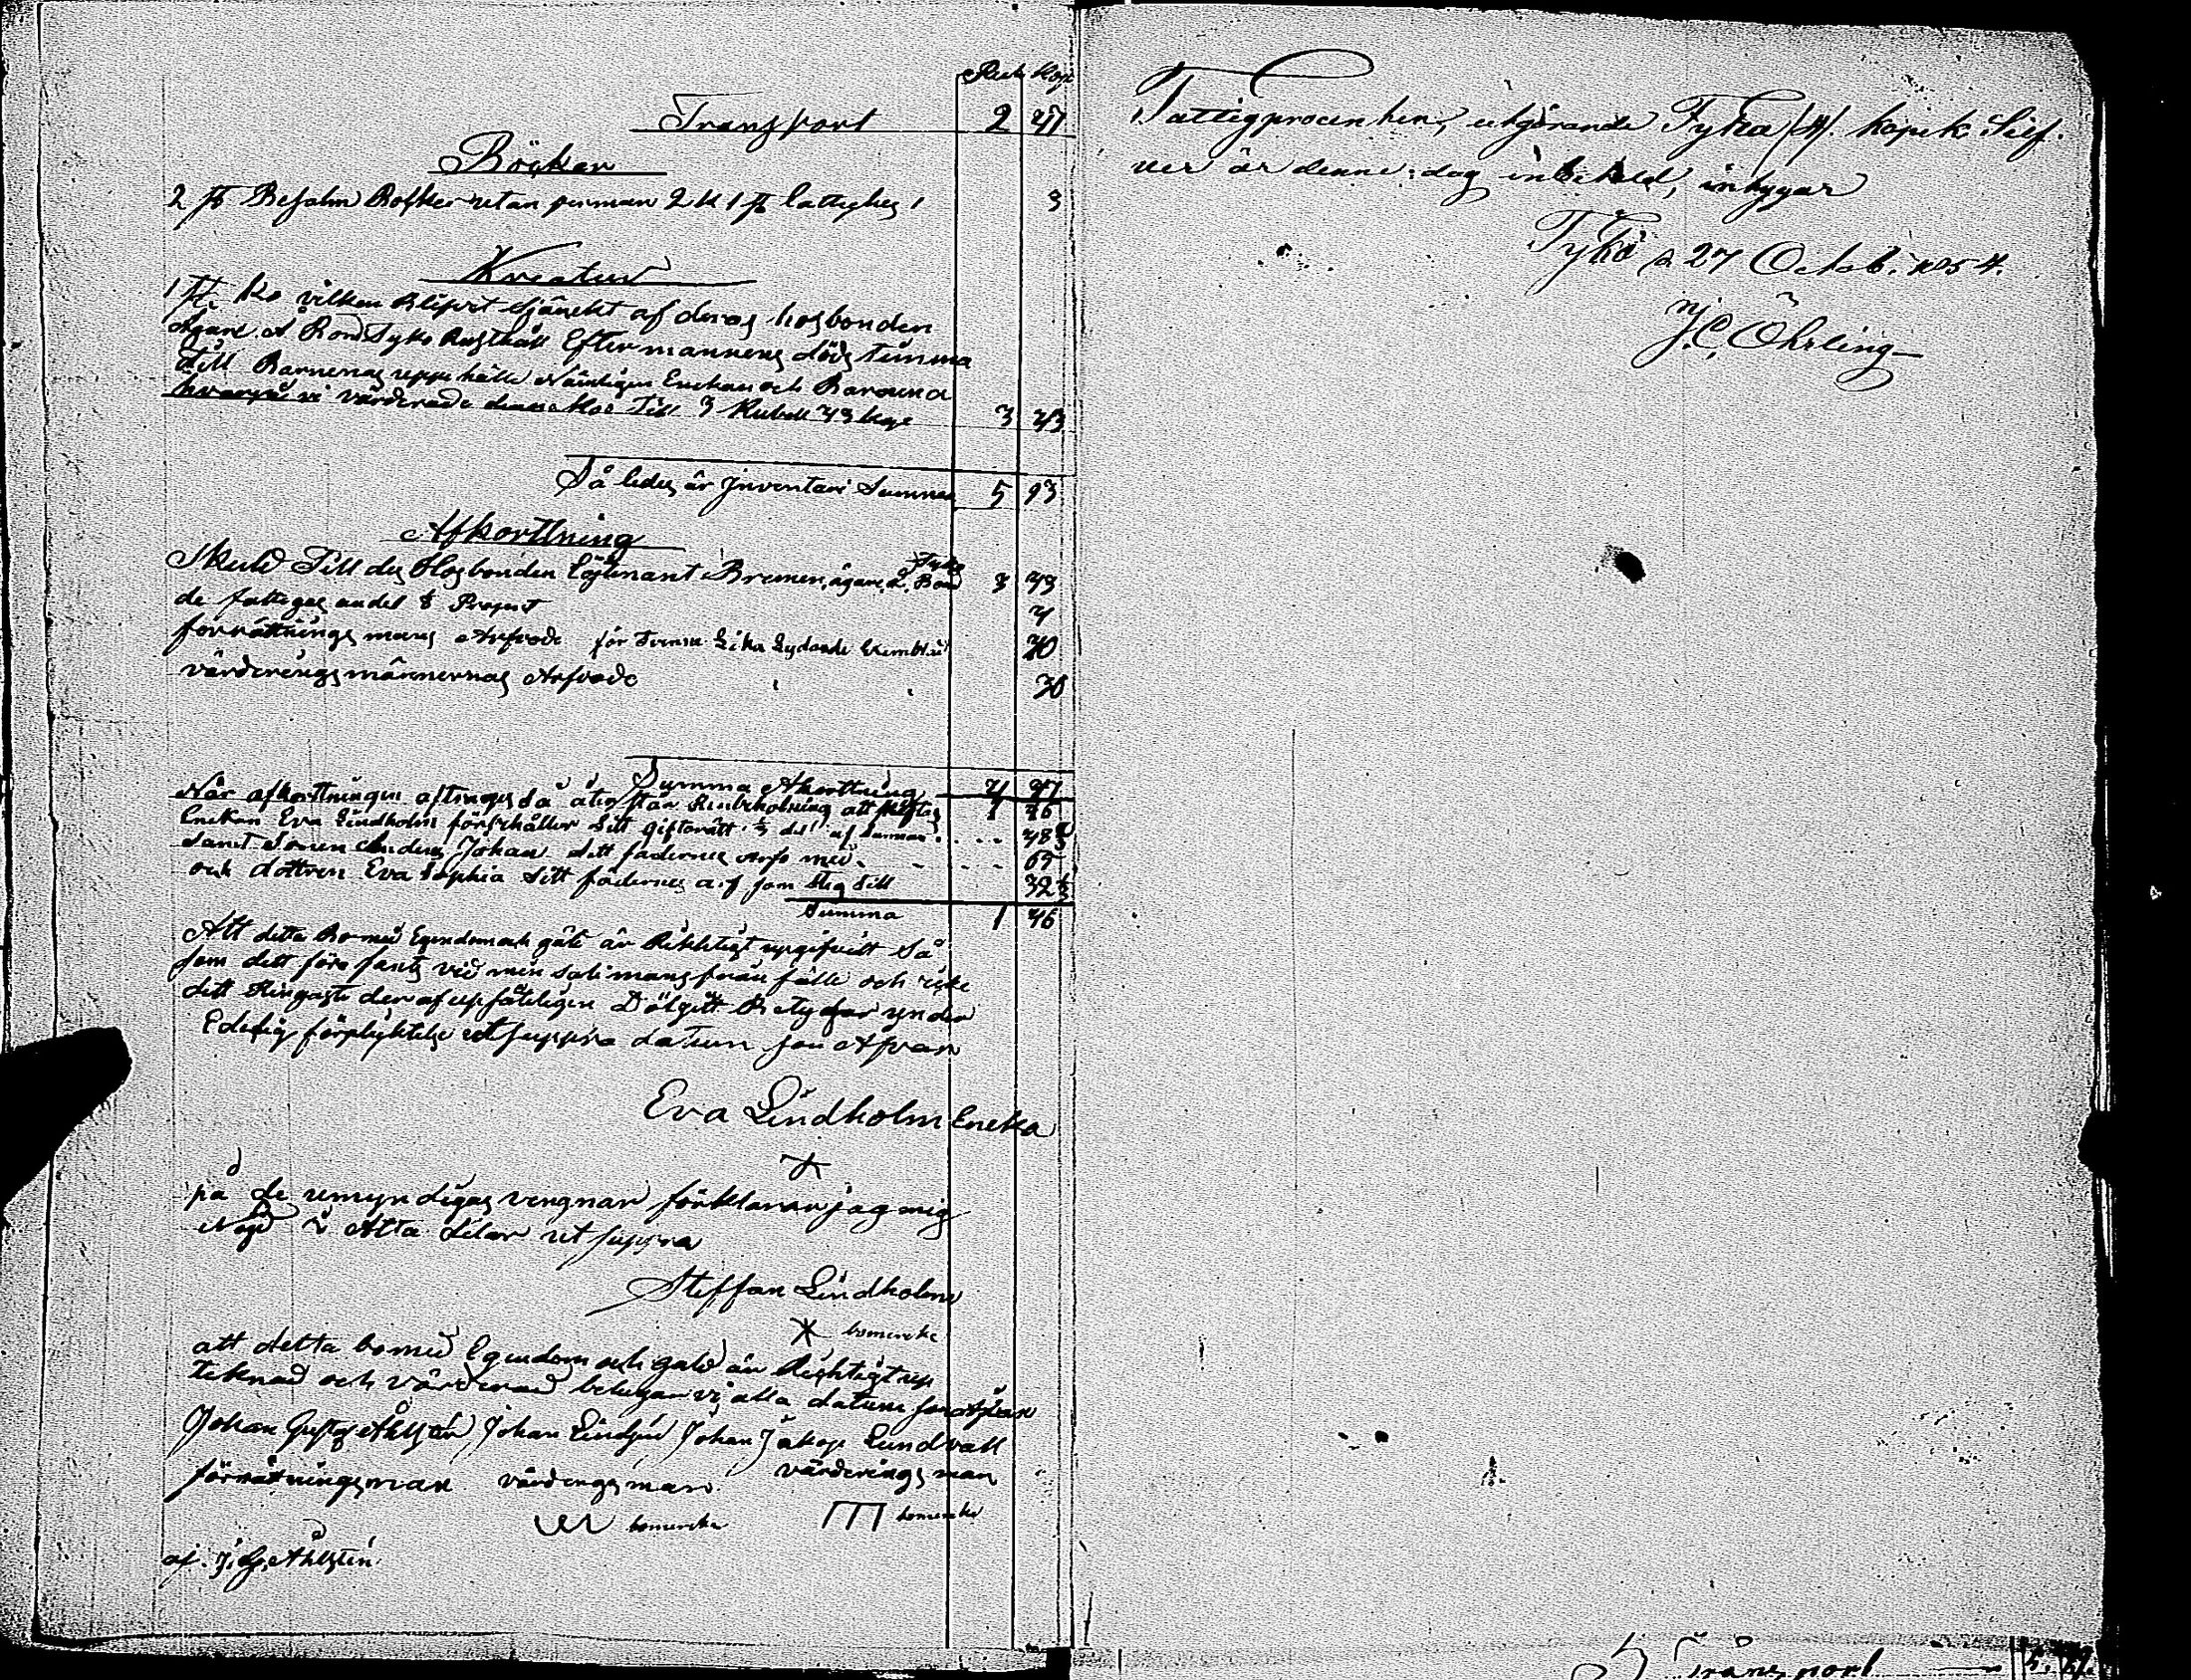 Rub Kop
Transport 2 47
Böcker
2 st Psalm Böcker utan permar 2 k 1 st 1 3
Kreatur
1 st Ko vilken blifvit skänckt af deras hosbonden
Ägare A Bond Tyko Rusthåll Efter mannens död Timma
till Barnenas uppehälle Nämligen Enckan och Barouna
hvarpå vi värderade denna Koo Till 3 Rubell 43 kop 3 43
Så ledes är Inventari Summa 5 93
Afkorttning
Skuld Till des Hosbonden Löjtenant Bremer, ägare A. Bond Tyko 3 43
de fattigas andel 4
förrättnings mans Arfvode för Tvenne Lika Lydande 70
värderingsmännernas Arfvode 30
Summa Akorttning 4 47
När afkorttningen aftinges då återstår att skiftas 1 46
Enckan Eva Lindholm förbehåller Sitt giftorätt 1/3 del af summan 48 2/3
samt Sonen Anders Johan sitt fädernes arfs med 65
och dottren Eva Sophia Sitt fädernes arf som stig till 32 1/2
Summa 1 46
Att detta Bo med Egendom och gäld är Rikhtigt upgifvitt Så
som dett före fants vid min Sali mans frånfälle och icke
ditt Ringaste der af upsåteligen Dölgitt Betygar under
Edelig förplicktelse ut suppra datum som Ofvan
Eva Lindholm Encka
på de umyndigas vengnar förklarar jag mig
Nögd i Alla delar ut suppra
Steffan Lindholm
bomercke
att detta bo med Egendom och gäld är Richtigt up
teknad och värderad betygar vi alla datum som ofvan
Johan Gustaf Ahlsten Johan Lindgren Johan Jakop Lundvall
förrätningsman värdringsman värderings man
bomercke bomercke
af J. G. Ahlsten
Fattigprocenten, utgörande Fyra /4/ kopek Silf-
ver är denna dag inbetald, intygar
Tykö d 27 Octob. 1854.
J. C. Öhrling
Transport